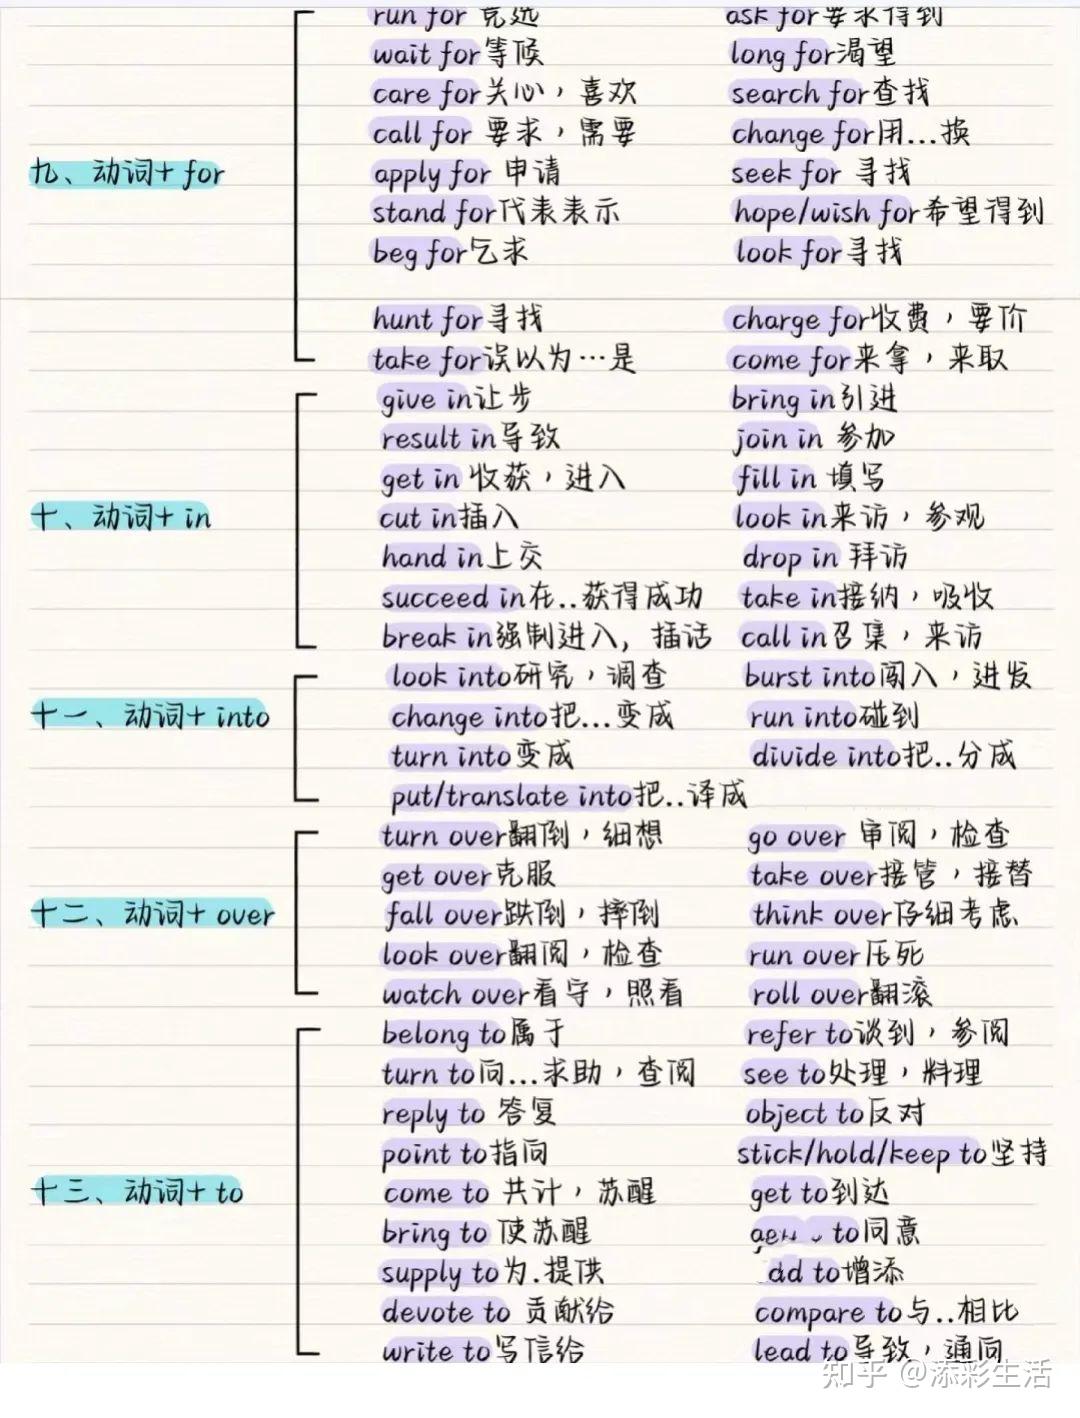 run for 竞选 ask for要求得到
wait for等候 long for渴望
care for关心，喜欢 search for查找
call for 要求，需要 change for用...换
九、动词+ for apply for 申请 seek for 寻找
stand for代表表示 hope/wish for希望得到
beg for乞求 look for寻找
hunt for寻找 charge for收费，要价
take for误以为…是 come for来拿，来取
give in让步 bring in引进
result in导致 join in 参加
get in 收获，进入 fill in 填写
十、动词+ in cut in插入 look in来访，参观
hand in上交 drop in 拜访
succeed in在..获得成功 take in接纳，吸收
break in强制进入, 插话 call in召集，来访
look into研究，调查 burst into闯入，迸发
十一、动词+ into change into把...变成 run into碰到
turn into变成 divide into把..分成
put/translate into把..译成
turn over翻倒，细想 go over 审阅，检查
get over克服 take over接管，接替
十二、动词+ over fall over跌倒，摔倒 think over仔细考虑
look over翻阅，检查 run over压死
watch over看守，照看 roll over翻滚
belong to属于 refer to谈到，参阅
turn to向...求助，查阅 see to处理，料理
reply to 答复 object to反对
point to指向 stick/hold/keep to坚持
十三、动词+ to come to 共计，苏醒 get to到达
bring to 使苏醒 to同意
supply to为.提供 to增添
devote to 贡献给 compare to与..相比
write to写信给 lead to导致，通向
知乎 @添彩生活